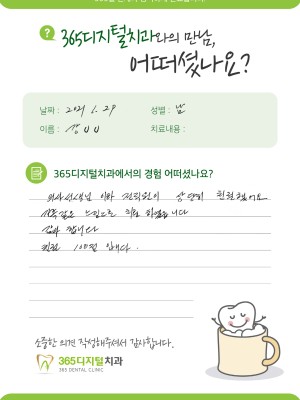 365디지털치과와의 만남,
어떠셨나요?
날짜 : 2021. 1. 29
성별 : 남
이름 : 강
치료내용 :
365디지털치과에서의 경험 어떠셨나요?
의사선생님 이하 전직원이 상당히 친절했어요
가족같은 느낌으로 치료 하였습니다
감사 합니다
친절 100점 입니다.
소중한 의견 작성해주셔서 감사합니다.
365디지털치과
365 DENTAL CLINIC